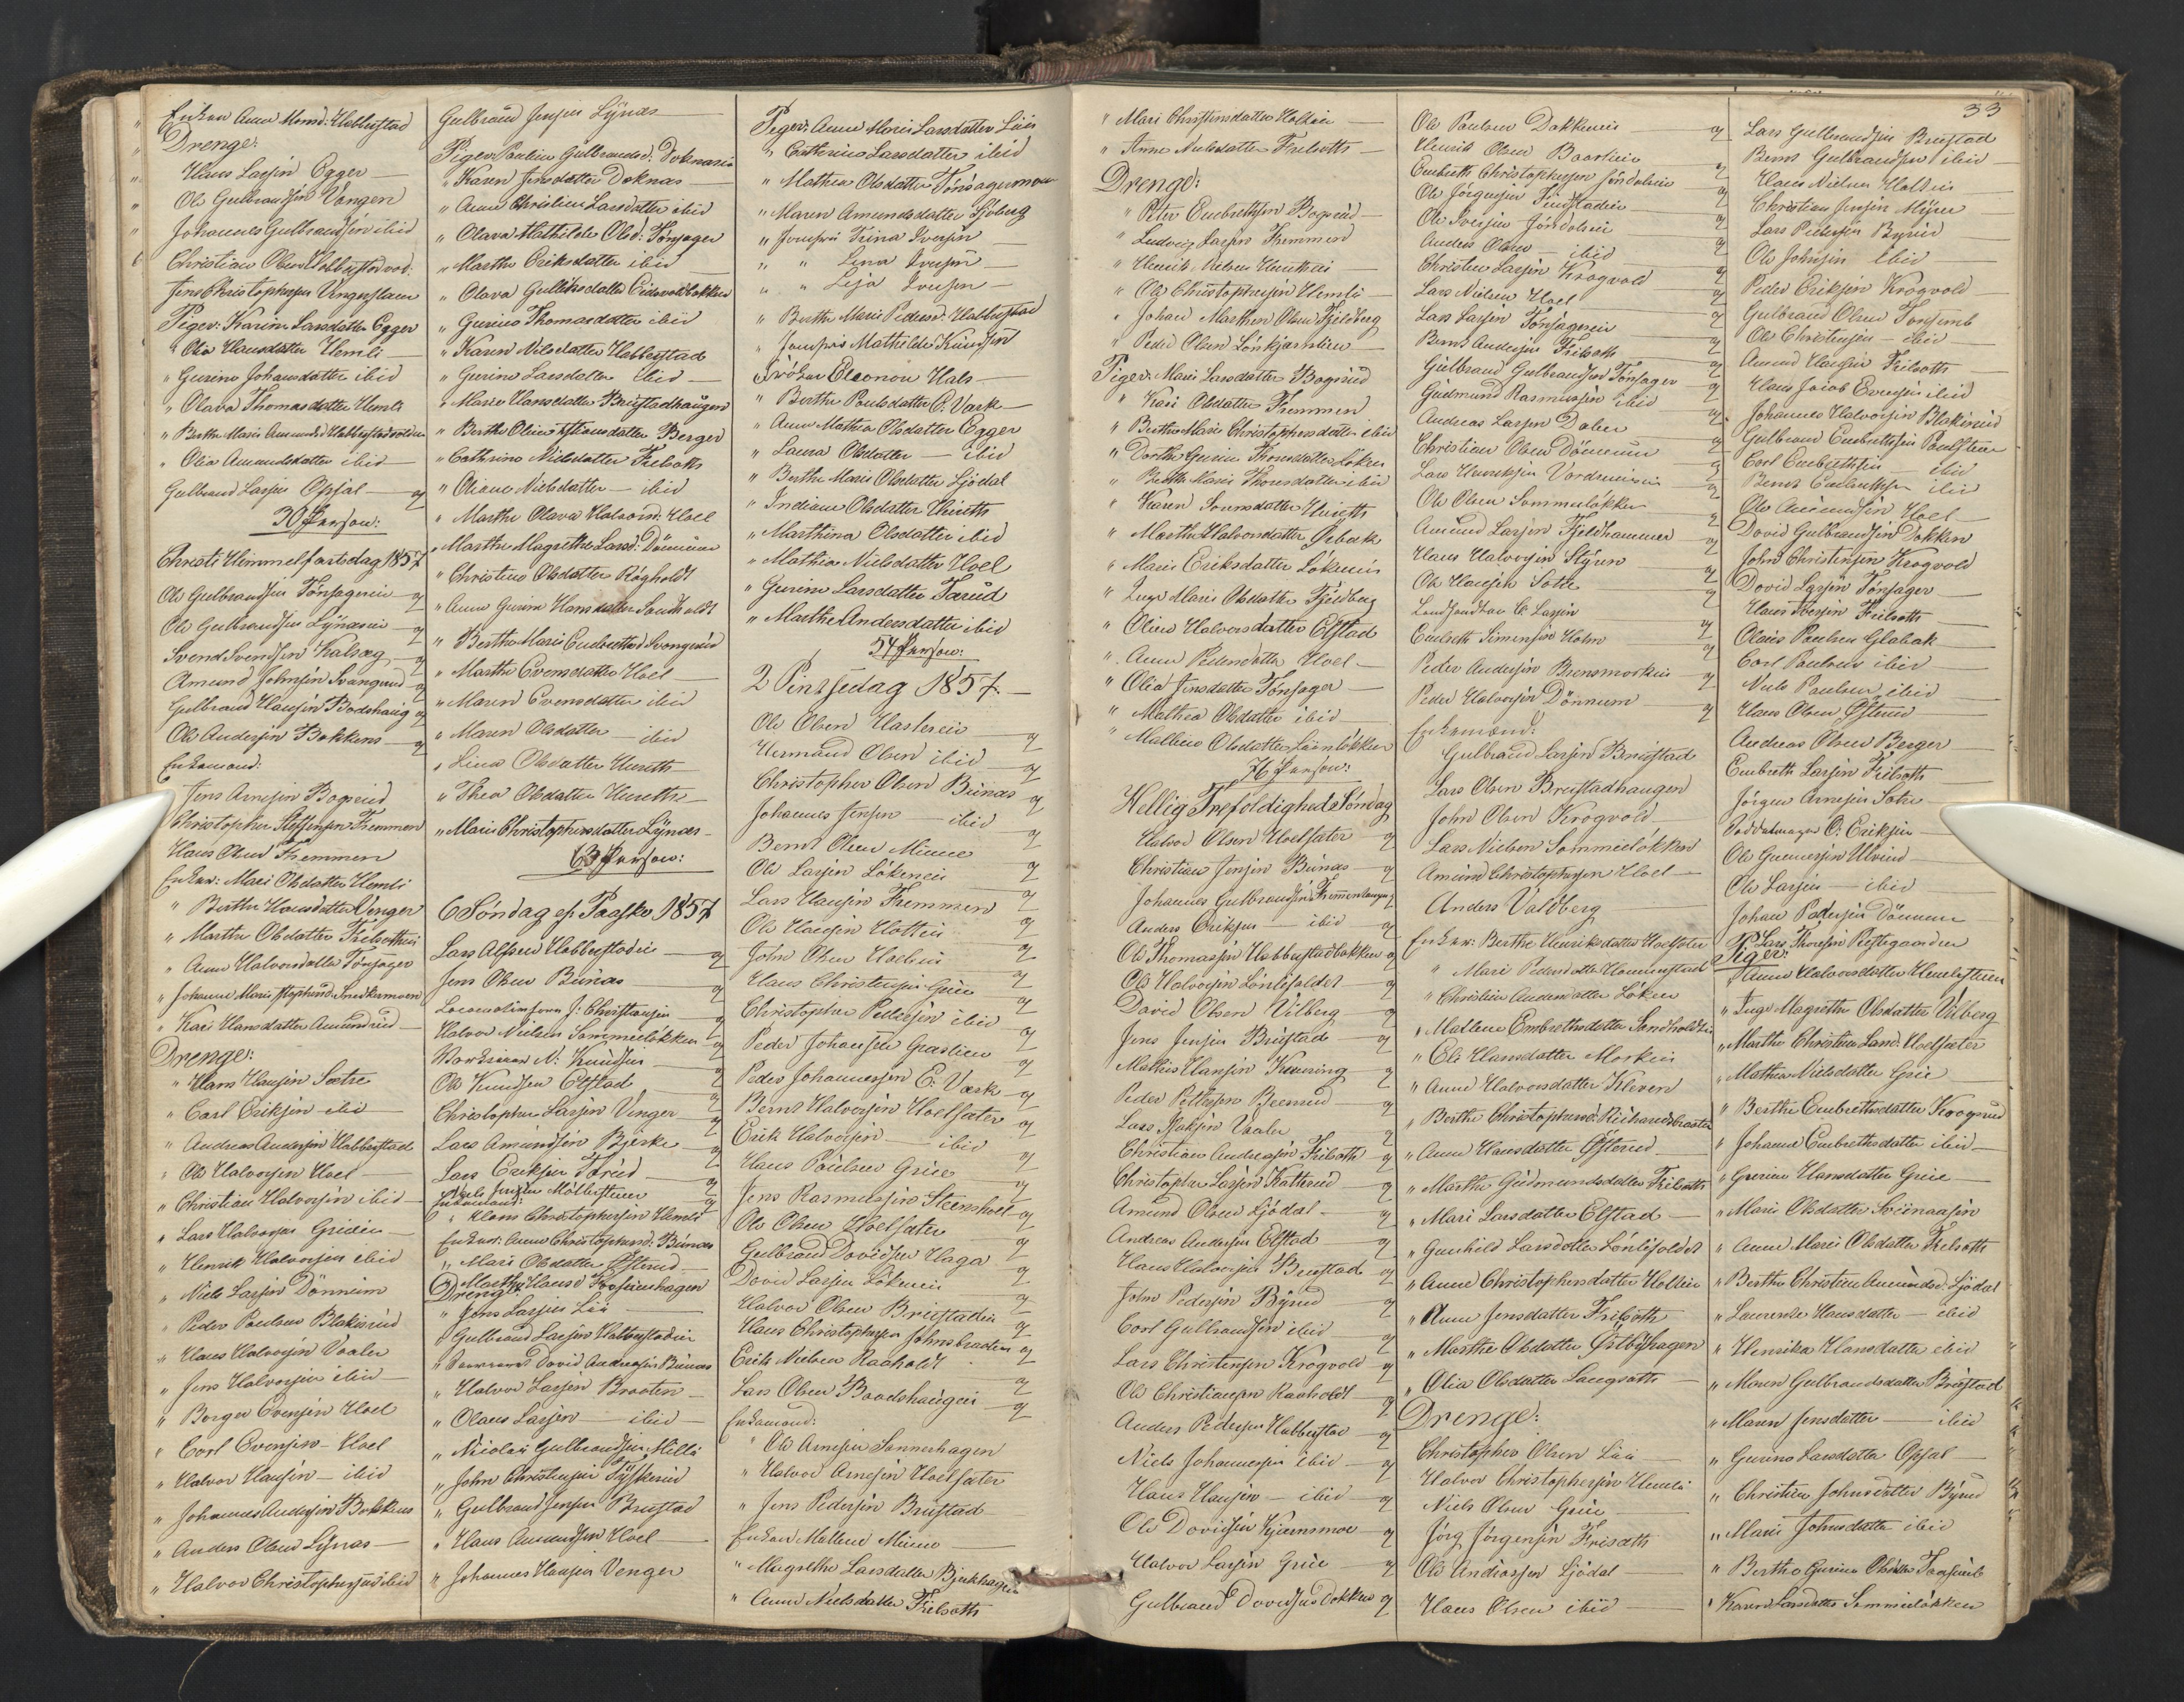 Enken Anne Mond: Habberstad
Drenge:
Hans Larsen Egger —
Ole Gulbrandsen Vangen
Johannes Gulbrandsen ibid
Christian Olsen Habberstad
Jens Christophersen
Piger: Karine Larsdatter Egger
" Olia Hansdatter Hemli —
" Gurine Johansdatter ibid
" Olava Thomasdatter Hemli
" Berthe Marie
" Olia Amundsdatter ibid
Gulbrand Larsen Opsal — g
30 Person:
Christi Himmelfartsdag 1857
Ole Gulbrandsen Tønsagereie g
Ole Gulbrandsen Lynæseie g
Svend Svendsen g
Amund Johnsen g
Gulbrand Hansen Bødshaug g
Ole Andersen Bakkens g
Enkemænd:
Jens Arnesen Bogsrud
Christopher Steffensen Fremmen
Hans Olsen Fremmen
Enker: Mari Olsdatter Hemli
" Berthe Hansdatter Venger
" Marthe Olsdatter Friilsætheie
" Anne Halvorsdatter Tønsager
" Johanne Marie
" Kari Hansdatter Amundrud
Drenge:
" Hans Hansen Sætre
" Carl Eriksen ibid
" Andreas Andersen Habberstad
" Ole Halvorsen Hoel
" Christian Halvorsen ibid
" Lars Halvorsen Grueeie
" Henrik Halvorsen ibid
" Niels Larsen Dønnum
" Peder Poulsen Blakisrud
" Hans Halvorsen Vaaler
" Jens Halvorsen ibid
" Borger Evensen Hoel
" Carl Evensen Hoel
" Halvor Hansen — ibid
" Johannes Andersen Bakkens
" Anders Olsen Lynæs
" Halvor Christophersen ibid
Gulbrand Jensen Lynæs
Piger Pauline Gulbrandsd: Doknæseie
" Karen Jensdatter Doknæs
" Anne Christine Larsdatter ibid
" Olava Mathilde Olsd: Tønsager
" Marthe Eriksdatter ibid
" Olava Gulliksdatter Eidsvoldbakken
" Gurine Thomasdatter ibid
" Karen Nilsdatter Habberstad
" Gurine Larsdatter ibid
" Marie Hansdatter Brustadhaugen
" Berthe Oline Berger
" Cathrine Nielsdatter Friilseth
" Oliane Nielsdatter — ibid
" Marthe Olava Halvorsd: Hoel
" Marthe Magrethe Larsd: Dønnum
" Christine Olsdatter Raaholdt
" Anne Gurine Hansdatter Sandholdt
" Berthe Marie Embrethsd
" Marthe Evensdatter Hoel
" Maren Evensdatter ibid
" Maren Olsdatter — ibid
" Lina Olsdatter Huseth
" Thea Olsdatter Huseth
" Marie Christophersdatter Lynæs
63 Person:
6 Søndag ef. Paaske 1857
Lars Alfsen Habberstadeie g
Jens Olsen Bunæs g
J. Christiansen g
Halvor Nielsen Sommerløkken g
N. Knudsen g
Ole Knudsen Elstad g
Christopher Larsen Venger g
Lars Amundsen Bjerke g
Lars Eriksen Tærud g
Niels Jensen g
Enkemænd:
" Hans Christophersen Hemli
Enker: Anne Christophersd: Bunæs
" Mari Olsdatter Østerud
" Marthe Hansd
Drenge
" Jens Larsen Lie
" Gulbrand Larsen Habberstadeie
" David Andreasen Bunæs
" Halvor Larsen Braaten
" Olaus Larsen — ibid
" Nicolai Gulbrandsen Hille
" John Christensen Tyskerud
" Gulbrand Jensen Brustad
" Hans Amundsen Hoel
" Johannes Hansen Venger
Piger: Anne Marie Larsdatter Lie
" Cathrine Larsdatter ibid
" Mathea Olsdatter Tønsagermoen
" Maren Amundsdatter Sjøberg
" Jomfru Trina Iversen
" " Lina Iversen
" " Lisa Iversen
" Berthe Marie Pedersd: Habberstad
" Jomfru Mathilde Knudsen
Frøken Eleonora Hals
" Berthe Poulsdatter E. Værk
" Anne Mathea Olsdatter Egger
" Laura Olsdatter — ibid
" Berthe Marie Olsdatter Sjødal
" Indiane Olsdatter Huseth
" Marthina Olsdatter ibid
" Mathia Nielsdatter Hoel
" Gurine Larsdatter Tærud
" Marthe Andersdatter ibid
54 Person:
2 Pintsedag 1857.
Ole Olsen g
Hermand Olsen ibid g
Christopher Olsen Bunæs g
Johannes Jensen ibid g
Bernt Olsen Minne g
Ole Larsen Løkeneie g
Lars Hansen Fremmen g
Ole Hansen Holtheie g
John Olsen g
Hans Christensen Grue g
Christopher Pettersen ibid g
Peder Johansen g
Peder Johannesen E. Værk g
Bernt Halvorsen Hoelsæter g
Erik Halvorsen — ibid g
Hans Poulsen Grue g
Jens Rasmussen Steensholt g
Ole Olsen Hoelsæter g
Gulbrand Davidsen Haga g
David Larsen Løkeneie g
Halvor Olsen Brustadeie g
Hans Christophersen Johnsbraaten g
Erik Nielsen Raaholdt g
Lars Olsen Baadshaugeie g
Enkemænd:
" Ole Arnesen Sannerhagen
" Halvor Arnesen Hoelsæter
" Jens Pedersen Brustad
Enken Mallene Minne
" Magrethe Larsdatter Bjerkhagen
" Anne Nielsdatter Friilseth
33
" Mari Christensdatter Holteie
" Anne Nielsdatter Friilseth
Drenge:
" Peter Embrethsen Bogsrud
" Ludvig Larsen Fremmen
" Henrik Nielsen
" Ole Christophersen Hemli
" Johan Marthin Olsen Fjeldberg
" Peder Olsen
Piger: Mari Larsdatter Bogsrud
" Kari Olsdatter Fremmen
" Berthe Marie Christophersdatter ibid
" Dorthe Gurine Thoresdatter Løken
" Berthe Marie Thoresdatter ibid
" Karen Huseth
" Marthe Halvorsdatter
" Marie Eriksdatter Løkeneie
" Inge Marie Olsdatter Fjeldberg
" Oline Halvorsdatter Elstad
" Anne Pedersdatter Hoel
" Olia Jensdatter Tønsager
" Mathea Olsdatter ibid
" Mallene Olsdatter
76 Person:
Hellig Trefoldigheds Søndag
Halvor Olsen Hoelsæter g
Christian Jensen Bunæs g
Johannes Gulbrandsen Fremmenhaugen g
Anders Eriksen — ibid g
Ole Thomassen Habberstadbakken g
Ole Halvorsen Lønlifaldet g
David Olsen Vilberg g
Jens Jensen Brustad g
Mathis Hansen g
Peder Pettersen g
Lars Isaksen Vaaler g
Christian Andreasen Friilseth g
Christopher Larsen Katterud g
Amund Olsen Sjødal g
Andreas Andersen Elstad g
Hans Halvorsen Brustad g
John Pedersen Byrud g
Carl Gulbrandsen ibid g
Lars Christensen Krogvold g
Ole Christiansen Raaholdt g
Anders Pedersen Habberstad g
Niels Johannesen ibid g
Hans Hansen — ibid g
Ole Davidsen Kjærnsmoe g
Halvor Larsen Grue g
Gulbrand Davidsen Dokken g
Ole Poulsen Dokkeneie g
Henrik Olsen Baarlieie g
Embreth Christophersen Jøndaleie g
Ole Jørgensen Finstadeie g
Ole Iversen Jøndaleie g
Anders Olsen ibid g
Christen Larsen Krogvold g
Lars Nielsen Hoel g
Lars Larsen Tønsagereie g
Bernt Andersen Friilseth g
Gulbrand Gulbrandsen Tønsager g
Gudmund Rasmussen ibid g
Andreas Larsen g
Christian Olsen Dønnum g
Lars Henriksen g
Ole Olsen Sommerløkken g
Amund Larsen Fjeldhammer g
Hans Halvorsen Styren g
Ole Hansen Sætre g
C. Larsen g
Embreth Simensen Holm g
Peder Andersen g
Peder Halvorsen Dønnum g
Enkemænd:
Gulbrand Larsen Brustad
Lars Olsen Brustadhaugen
John Olsen Krogvold
Lars Nielsen Sommerløkken
Amund Christophersen Hoel
Anders Valdberg
Enker: Berthe Henriksdatter Hoelsæter
" Mari Pedersdatter
" Christine Andersdatter Løken
" Mallene Embrethsdatter Sandholdt
" Eli Hansdatter
" Anne Halvorsdatter Kleven
" Berthe Christophersd:
" Anne Hansdatter Østerud
" Marthe Gudmundsdatter Friilseth
" Mari Larsdatter Elstad
" Gunhild Larsdatter Lønlifaldet
" Anne Christophersdatter Holteie
" Anne Jensdatter Friilseth
" Marthe Olsdatter Østbyhagen
" Olia Olsdatter Langseth
Drenge:
Christopher Olsen Lie
Halvor Christophersen Hemli
Niels Olsen Grue
Jørg Jørgensen
Ole Andreassen Sjødal
Hans Olsen ibid
Lars Gulbrandsen Brustad
Bernt Gulbrandsen ibid
Hans Nielsen Holteie
Christian Jensen Myrer
Lars Pedersen Byrud
Ole Johnsen ibid
Peder Eriksen Krogvold
Gulbrand Olsen
Ole Christensen — ibid
Amund Hansen Friilseth
Hans Jacob Evensen ibid
Johannes Halvorsen Blakisrud
Gulbrand Embrethsen
Carl Embrethsen — ibid
Bernt Embrethsen ibid
Ole Amundsen Hoel
David Gulbrandsen Dokken
John Christensen Krogvold
David Larsen Tønsager
Hans Iversen Friilseth
Olaus Poulsen
Carl Poulsen ibid
Niels Poulsen ibid
Hans Olsen Østerud
Andreas Olsen Berger
Embreth Larsen Friilseth
Jørgen Arnesen Sætre
O. Eriksen
Ole Gunnersen Ulvind
Ole Larsen — ibid
Johan Pedersen Dønnum
Lars Thoresen Prestegaarden
Piger:
" Anne Halvorsdatter
" Inge Magrethe Olsdatter Vilberg
" Marthe Christine Larsd: Hoelsæter
" Mathea Nielsdatter Grue
" Berthe Embrethsdatter Krogsrud
" Johanne Embrethsdatter ibid
" Gurine Hansdatter Grue
" Marie Olsdatter
" Anne Marie Olsdatter Friilseth
" Berthe Christine Amundsd: Sjødal
" Laurentze Hansdatter — ibid
" Henrika Hansdatter ibid
" Maren Gulbrandsdatter Brustad
" Maren Jensdatter — ibid
" Gurine Larsdatter Opsal
" Christine Johnsdatter Byrud
" Marie Johnsdatter ibid
" Berthe Gurine Olsdatter
" Karen Larsdatter Sommerløkken